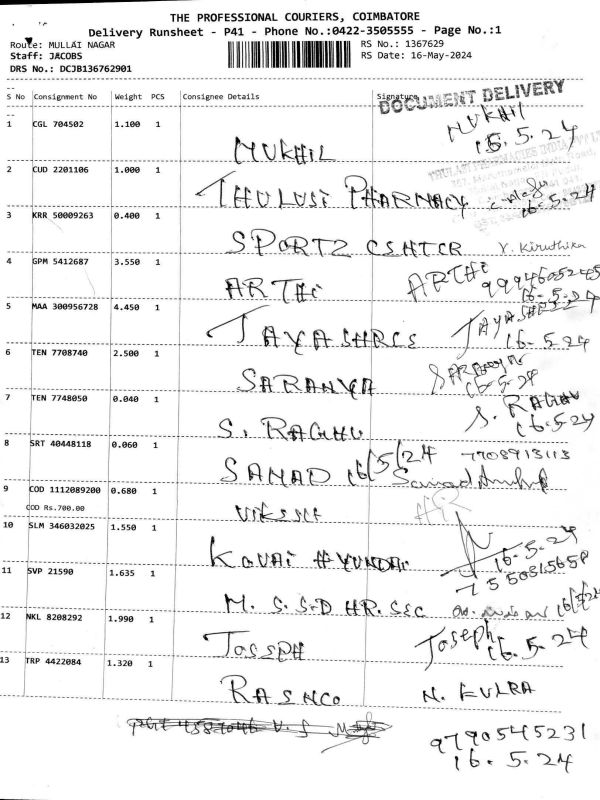 THE PROFESSIONAL COURIERS, COIMBATORE
Delivery Runsheet - P41 - Phone No.:0422-3505555 - Page No.:1
Route: MULLAI NAGAR
RS No.: 1367629
Staff: JACOBS
RS Date: 16-May-2024
DRS No.: DCJB136762901
S No Consignment No Weight PCS Consignee Details Signature
DOCUMENT DELIVERY
1 CGL 704502 1.100 1
MUKHIL MUKHIL 16.5.24
2 CUD 2201106 1.000 1
THULUSI PHARMACY 16.5.24
3 KRR 50009263 0.400 1
SPORTZ Y. Kiruthika
4 GPM 5412687 3.550 1
ARTHI ARTHI 9994605245
16.5.24
5 MAA 300956728 4.450 1
JAYASHREE JAYASHREE
16.5.24
6 TEN 7708740 2.500 1
SARANYA 16.5.24
7 TEN 7748050 0.040 1
S. RAGHU S. RAGHU
16.5.24
8 SRT 40448118 0.060 1
SAMAD 16/5/24 7708913113
9 COD 1112089200 0.680 1
COD Rs.700.00
10 SLM 346032025 1.550 1
KOVAI HYUNDAI 16.5.24
7550515658
11 SVP 21590 1.635 1
M. S. S.D HR.SEC 16/5/24
12 NKL 8208292 1.990 1
JOSEPH Joseph
16.5.24
13 TRP 4422084 1.320 1
9790545231
16.5.24